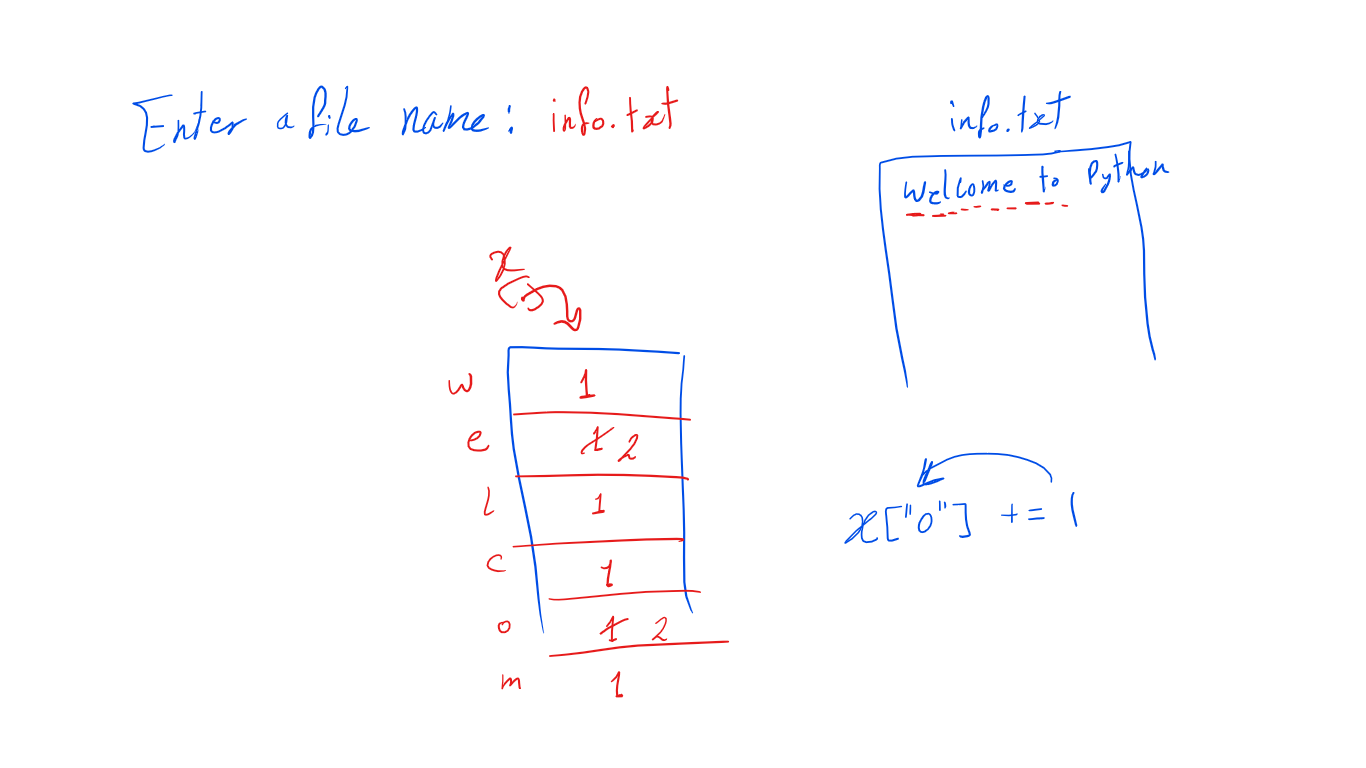 Enter a file name: info.txt
info.txt
Welcome to Python
x
w 1
e 1 2
l 1
c 1
o 1 2
m 1
x["o"] += 1